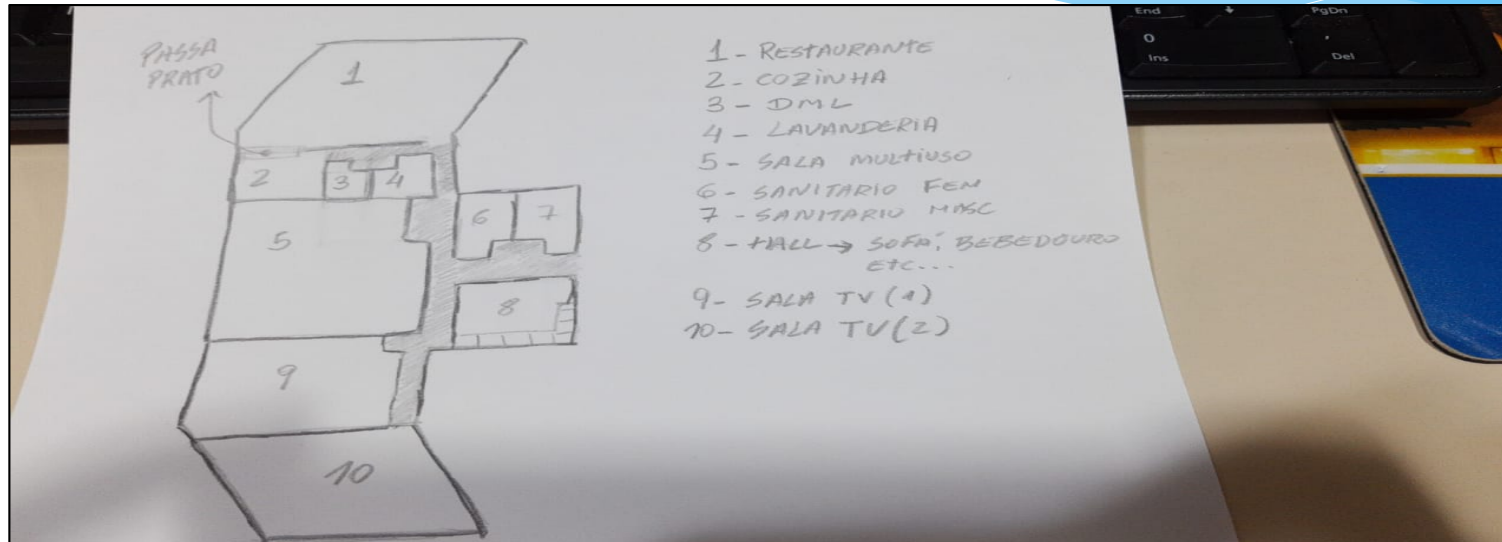 PASSA
PRATO
1
2
3
4
5
6
7
8
9
10
1 - RESTAURANTE
2 - COZINHA
3 - DML
4 - LAVANDERIA
5 - SALA MULTIUSO
6 - SANITARIO FEM
7 - SANITARIO MASC
8 - HALL → SOFÁ, BEBEDOURO
ETC...
9 - SALA TV (1)
10 - SALA TV (2)
End
PgDn
0
Ins
Del